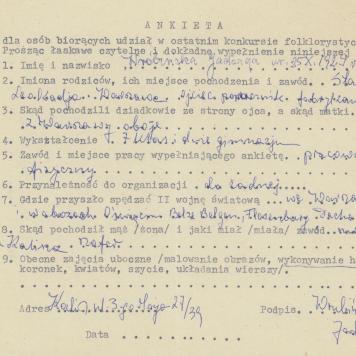 ANKIETA
dla osób biorących udział w ostatnim konkursie folklorystyc
Prosząc łaskawe czytelne i dokładne wypełnienie niniejszej
1. Imię i nazwisko Jadwiga ur.
2. Imiona rodziców, ich miejsce pochodzenia i zawód.
Warszawa
3. Skąd pochodzili dziadkowie ze strony ojca, a skąd matki
z Warszawy oboje
4. Wykształcenie 7 klas i dwie gimnazjum
5. Zawód i miejsce pracy wypełniającego ankietę. pracow
fizyczny
6. Przynależność do organizacji - do żadnej
7. Gdzie przyszło spędzać II wojnę światową we Wars
i w obozach Oświęcim Belsen Flossenburg Dacha
8. Skąd pochodził mąż /żona/ i jaki miał /miała/ zawód
Kalisza
9. Obecne zajęcia uboczne /malowanie obrazów, wykonywanie h
koronek, kwiatów, szycie, układania wierszy/.
Adres Kalisz W. 3-go Maja 27/39 Podpis.
Data